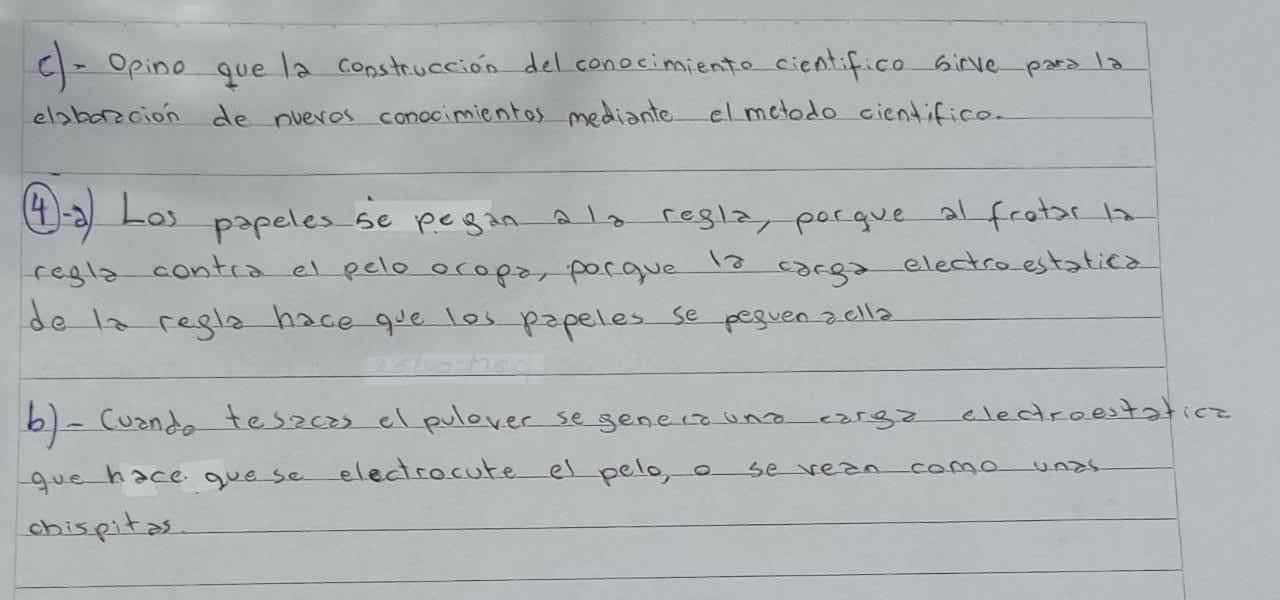 c)- Opino que la construcción del conocimiento cientifico sirve para la
elaboración de nuevos conocimientos mediante el metodo cientifico.
4-a) Los papeles se pegan a la regla, porque al frotar la
regla contra el pelo o ropa, porque la carga electroestatica
de la regla hace que los papeles se peguen a ella
b)- Cuando te sacas el pulover se genera una carga electroestatica
que hace que se electrocute el pelo, o se vean como unas
chispitas.